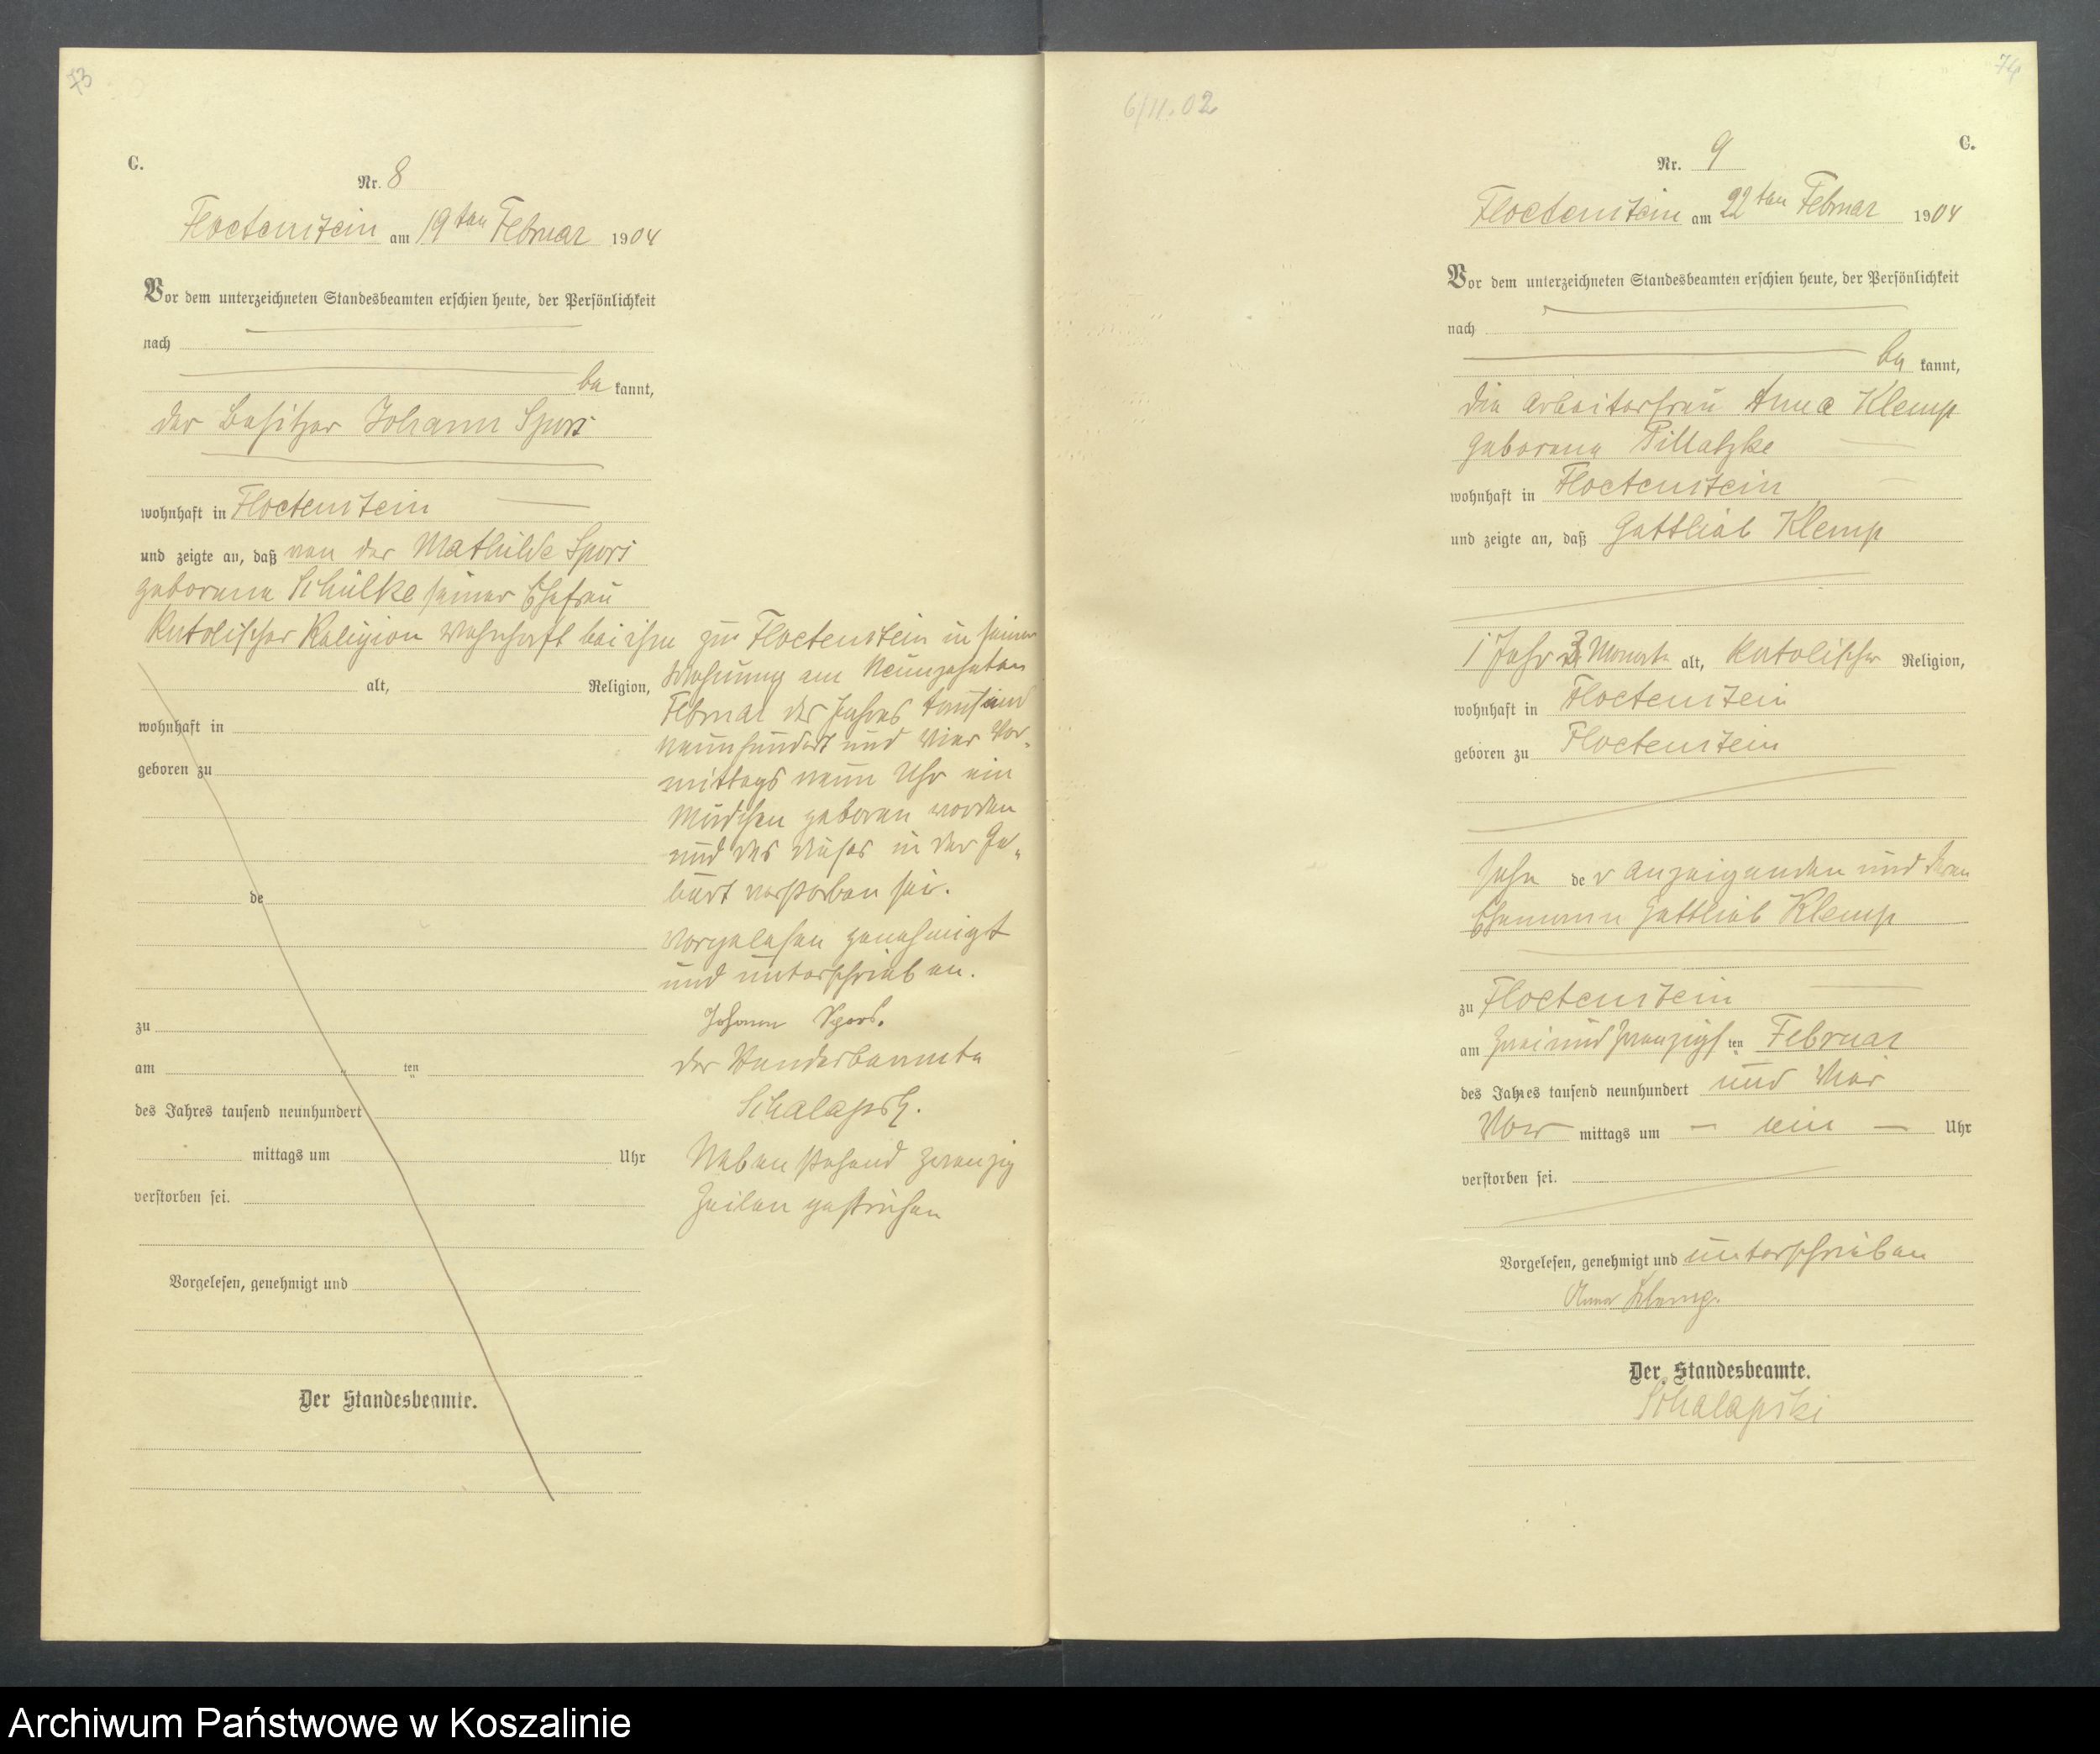 73
C.
Nr. 8
Floetenstein am 19ten Februar 1904
Vor dem unterzeichneten Standesbeamten erschien heute, der Persönlichkeit
nach
be kannt,
der Besitzer Johann Spors
wohnhaft in Floetenstein
und zeigte an, daß von der Mathilde Spors
geborene Schülke seiner Ehefrau
katolischer Religion wohnhaft bei ihm zu Floetenstein in seiner
Wohnung am Neunzehnten
Februar des Jahres tausend
neunhundert und vier Vor-
mittags neun Uhr ein
Mädchen geboren worden
und das dieses in der Ge-
burt verstorben sei.
Vorgelesen genehmigt
und unterschrieben.
Johann Spors.
Der Standesbeamte
Schalapsk.
Nebenstehend zwanzig
Zeilen gestrichen
alt, Religion,
wohnhaft in
geboren zu
de
zu
am ten
des Jahres tausend neunhundert
mittags um Uhr
verstorben sei.
Vorgelesen, genehmigt und
Der Standesbeamte.
74
6/11.02
C.
Nr. 9
Floetenstein am 22ten Februar 1904
Vor dem unterzeichneten Standesbeamten erschien heute, der Persönlichkeit
nach
be kannt,
die Arbeiterfrau Anna Klemp
geborene Pillatzke
wohnhaft in Floetenstein
und zeigte an, daß Gottlieb Klemp
1 Jahr 3 Monate alt, katolischer Religion,
wohnhaft in Floetenstein
geboren zu Floetenstein
Sohn de r Anzeigenden und deren
Ehemann Gottlieb Klemp
zu Floetenstein
am zweiundzwanzigs ten Februar
des Jahres tausend neunhundert und vier
Vor mittags um – ein – Uhr
verstorben sei.
Vorgelesen, genehmigt und unterschrieben
Anna Klemp.
Der Standesbeamte.
Schalapski
Archiwum Państwowe w Koszalinie